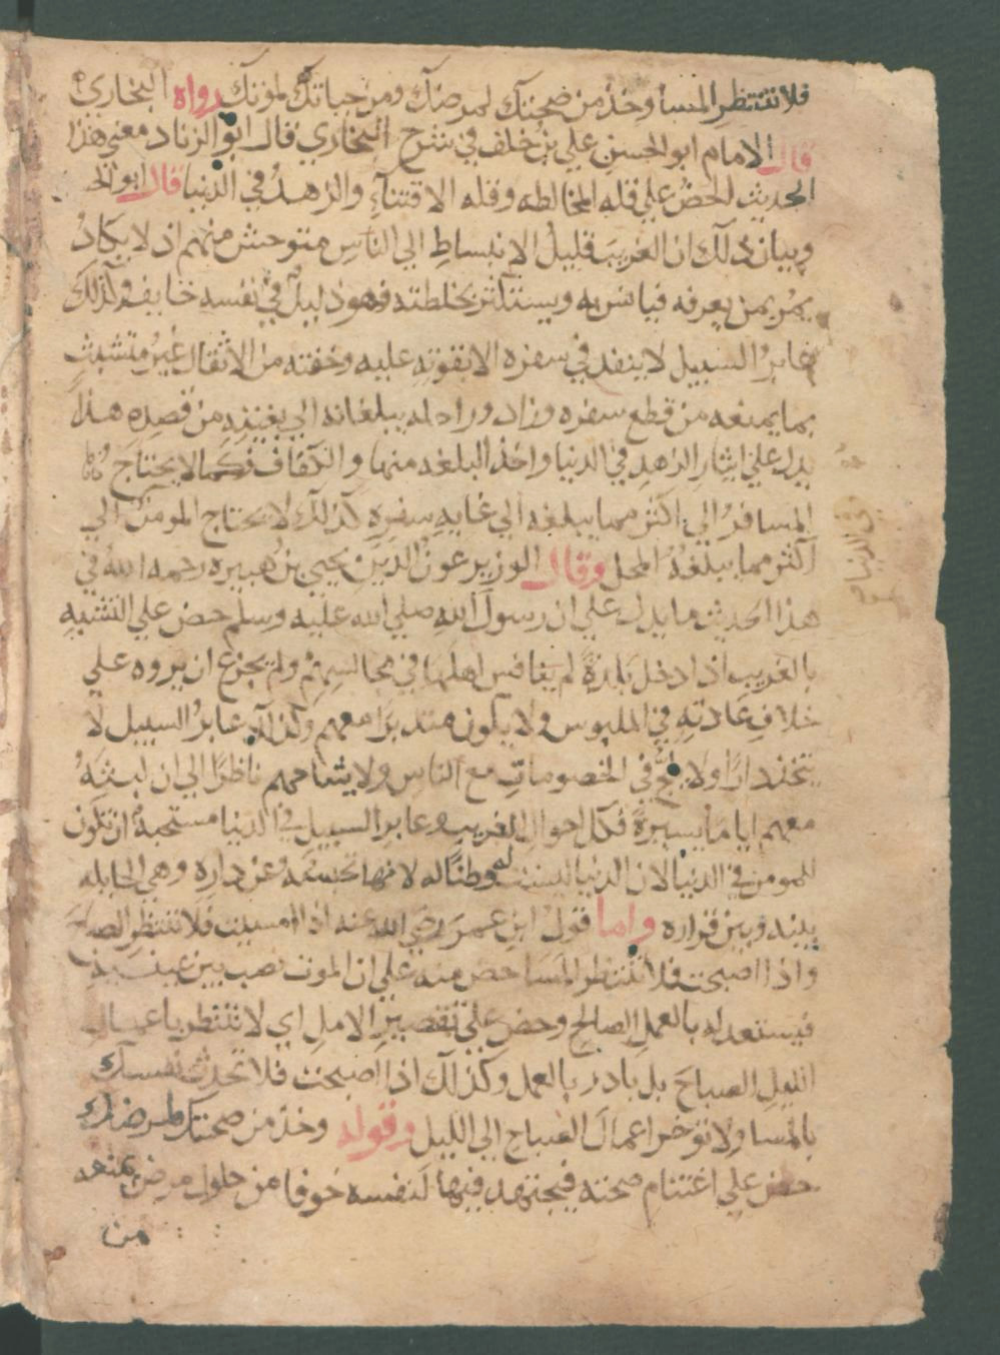 فلا تنتظر المسا وخذ من صحتك لمرضك ومن حياتك لموتك رواه البخاري
قال الامام ابو الحسن علي بن خلف في شرح البخاري قال ابو الزناد معني هذا
الحديث الحض علي قله المخالطه وقله الاقتناء والزهد في الدنيا قال ابو الحـ
وبيان ذلك ان الغريب قليل الانبساط الي الناس متوحش منهم اذ لا يكاد
يمر بمن يعرفه فيانس به ويستكثر بخلطته فهو ذليل في نفسه خايف وكذلك
عابر السبيل لا ينفد في سفره الا بقوته عليه وخفته من الاثقال غير متشبث
بما يمنعه من قطع سفره وزاد وراحله يبلغانه الي بغيته من قصده هذا
يدل علي ايثار الزهد في الدنيا واخذ البلغه منها والكفاف فكما لا يحتاج
المسافر الي اكثر مما يبلغه الي غايه سفره كذلك لا يحتاج المومن الي
اكثر مما يبلغه المحل وقال الوزير عون الدين يحيي بن هبيره رحمه الله في
هذا الحديث ما يدل علي ان رسول الله صلي الله عليه وسلم حض علي التشبه
بالغريب اذا دخل بلدة لم ينافس اهلها في مجالسهم ولم يجزع ان يروه علي
خلاف عادته في الملبوس ولا يكون متدبرا معهم وكذلك عابر السبيل لا
يتخذ دارا ولا يلج في الخصومات مع الناس ولا يشاحهم ناظرا الي ان لبثه
معهم اياما يسيرة فكل احوال الغريب وعابر السبيل في الدنيا مستحبة ان تكون
للمومن في الدنيا لان الدنيا ليست وطنا له لانها تحبسه عن داره وهي الحايله
بينه وبين قراره واما قول ابن عمر رضي الله عنه اذا امسيت فلا تنتظر الصباح
واذا اصبحت فلا تنتظر المسا حض منه علي ان الموت نصب بين عينيه
فيستعد له بالعمل الصالح وحض علي تقصير الامل اي لا تنتظر باعمال
الليل الصباح بل بادر بالعمل وكذلك اذا اصبحت فلا تحدث نفسك
بالمسا ولا توخر اعمال الصباح الي الليل وقوله وخذ من صحتك لمرضك
حض علي اغتنام صحته فيجتهد فيها لنفسه خوفا من حلول مرض يمنعه
من
في الدنيا